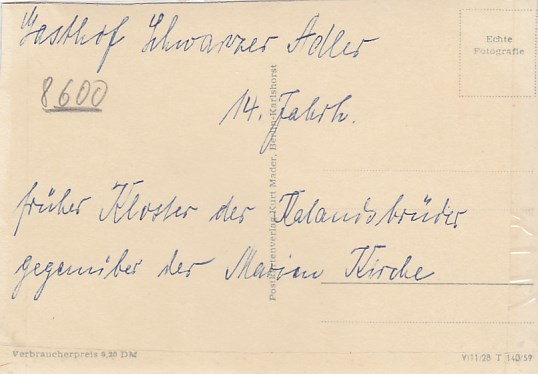 Gasthof Schwarzer Adler
8600
14. Jahrh.
früher Kloster der Kalandsbrüder
gegenüber der Marien Kirche
Echte
Fotografie
Postkartenverlag Kurt Mader, Berlin-Karlshorst
Verbraucherpreis 0,20 DM
V/11/28 T 140/59